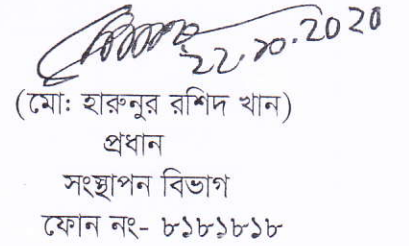 22.10.2020
(মো: হারুনুর রশিদ খান)
প্রধান
সংস্থাপন বিভাগ
ফোন নং- ৮১৮১৮১৮